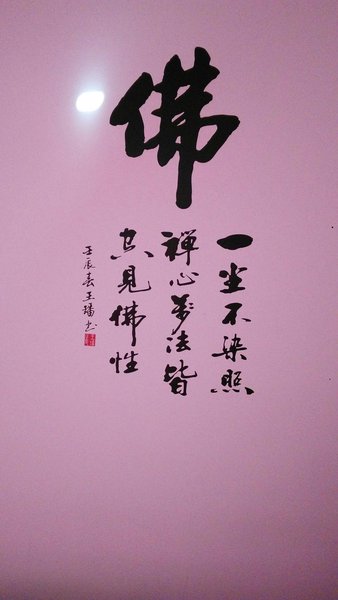 佛
一尘不染照
禪心萬法皆
空見佛性
壬辰春王璠书